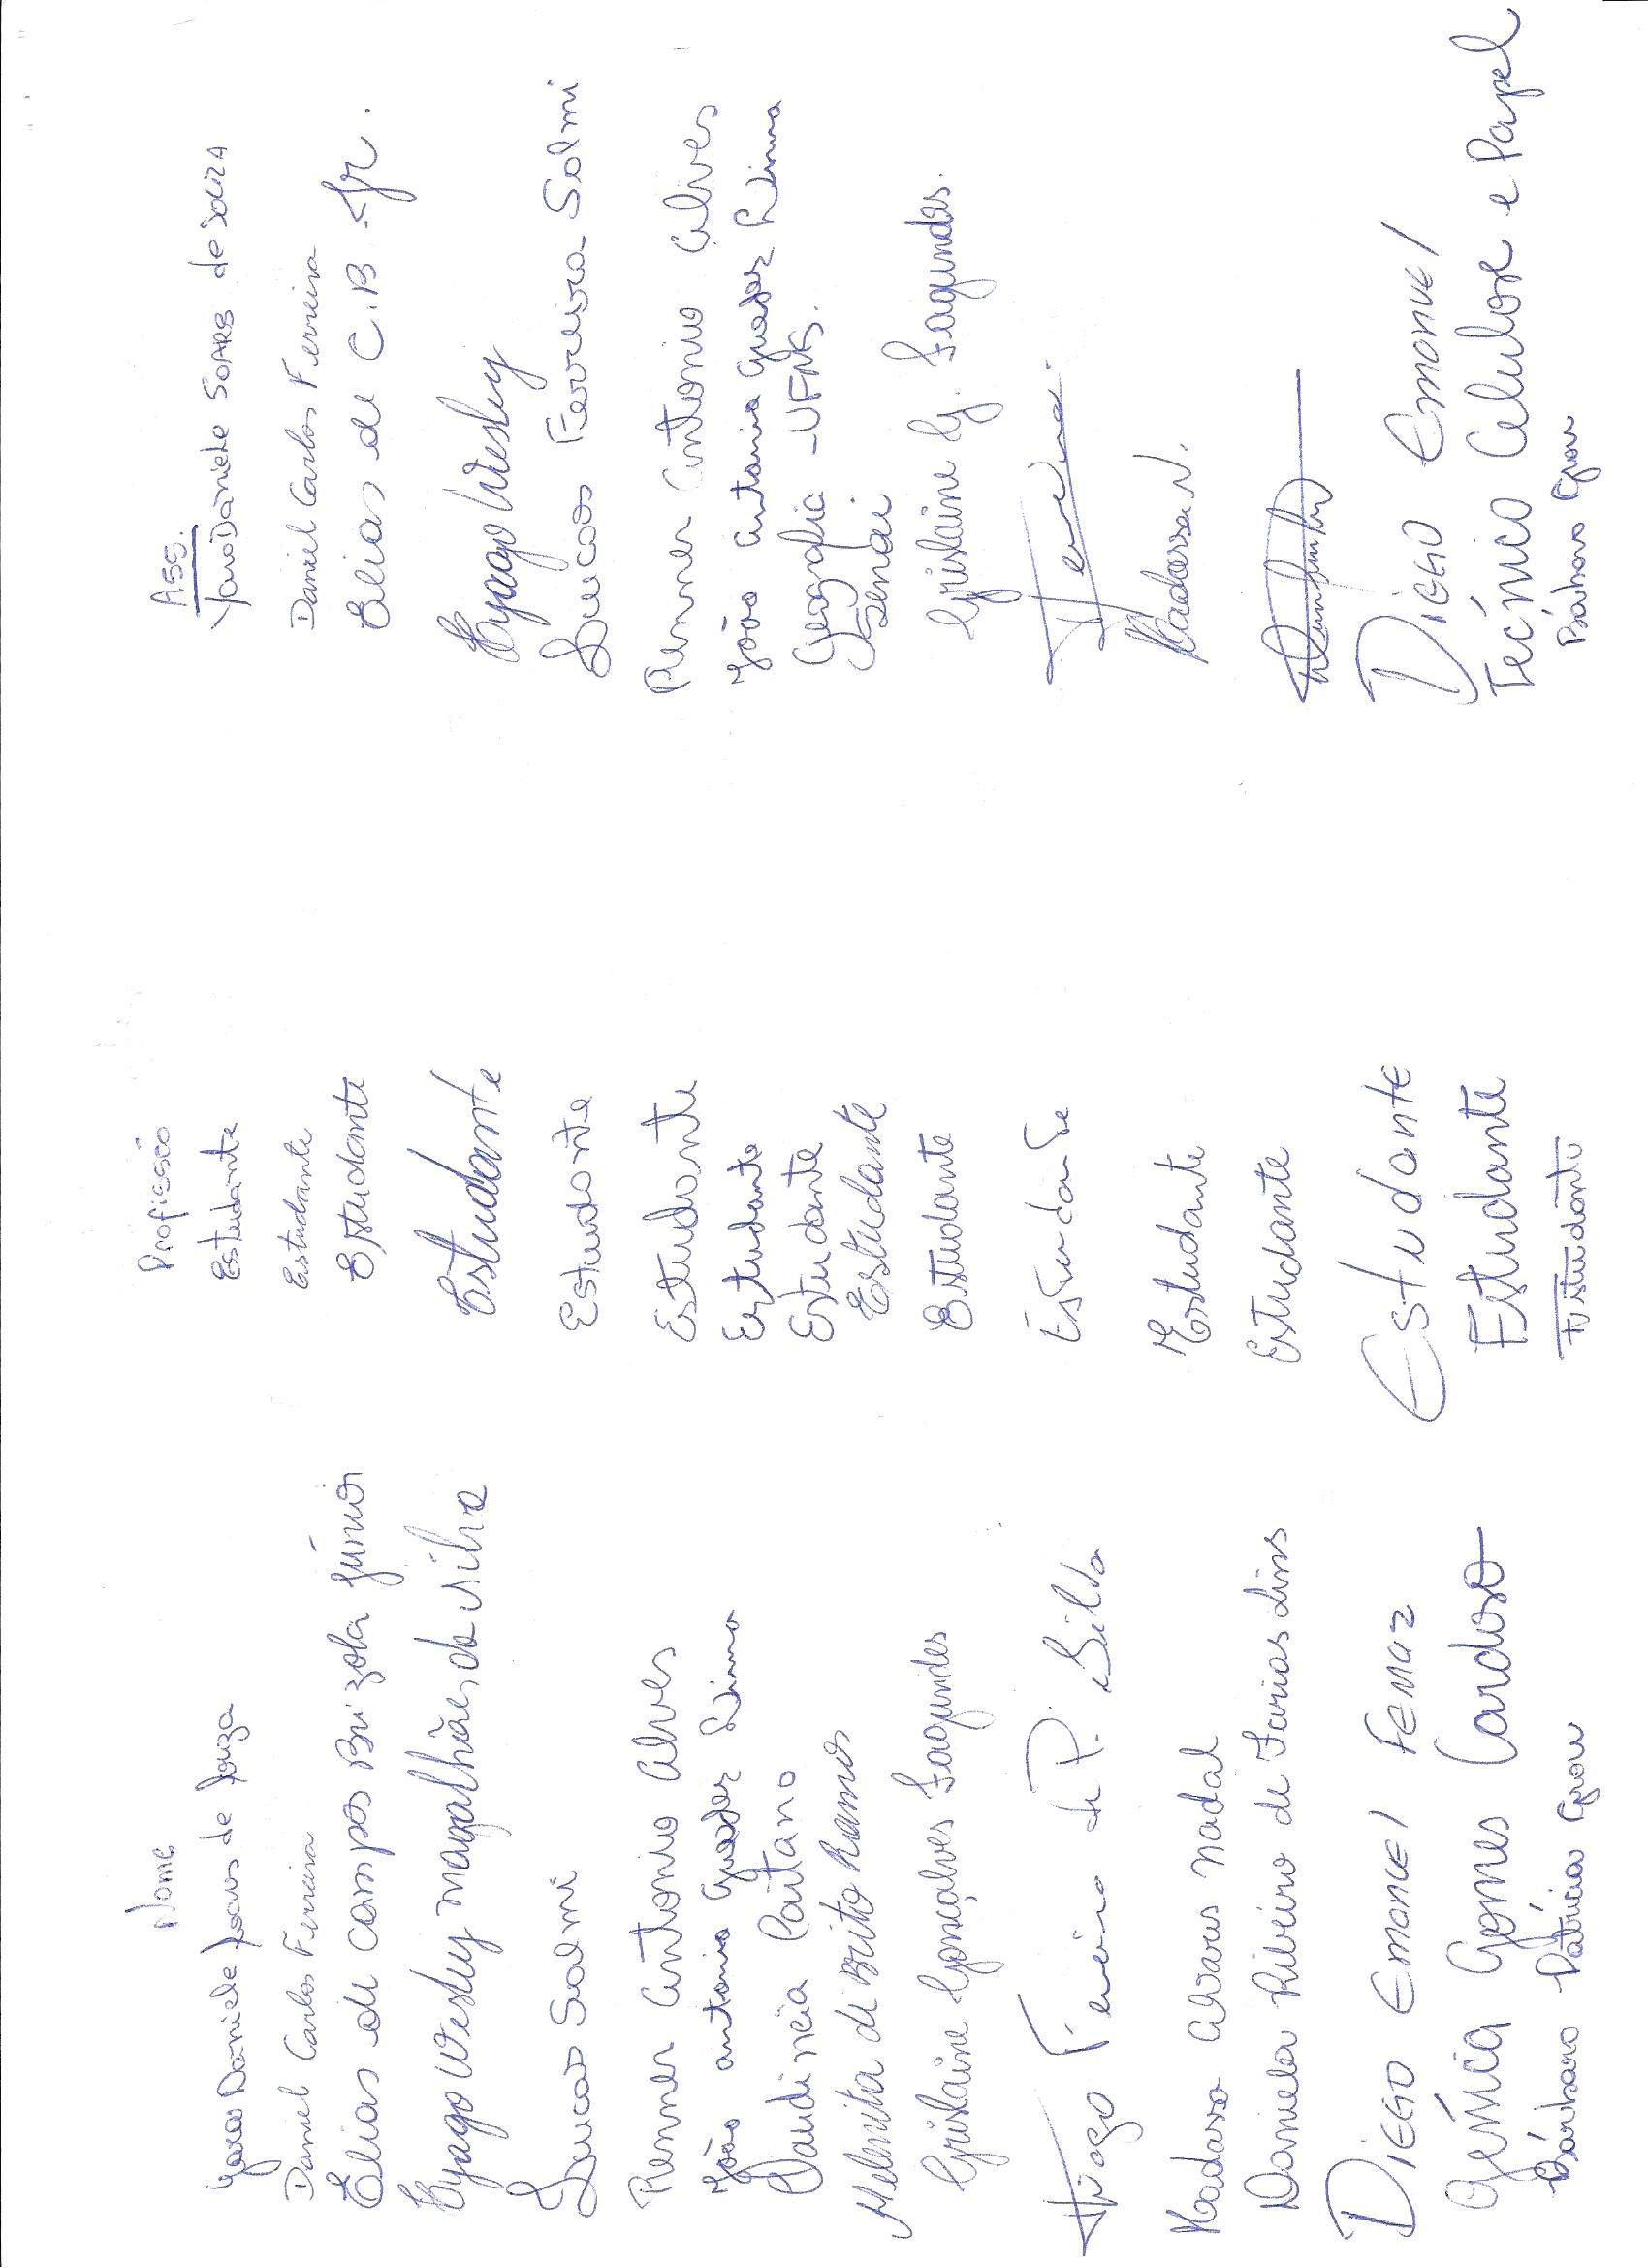 Nome Profissão Ass.
Yara Daniele Soares de Souza Estudante Yara Daniele Soares de Souza
Daniel Carlos Ferreira Estudante Daniel Carlos Ferreira
Elias de Campos Brizola Júnior Estudante Elias de C.B. Jr.
Hyago Wesley Magalhães da Silva Estudante Hyago Wesley
Lucas Salmi Estudante Lucas Ferreira Salmi
Renner Antonio Alves Estudante Renner Antonio Alves
João Antonio Lima Estudante João Antonio Lima
Claudineia Caitano Estudante Geografia
Melenita de Brito Ramos Estudante Senai
Grislaine Gonçalves Fagundes Estudante Grislaine G. Fagundes.
Tiago Ferreira de P. Silva Estudante
Hadassa Alvares Nadal Estudante Hadassa N.
Daniela Ribeiro de Farias Lins Estudante
Diego Emanoel Ferraz Estudante Diego Emanoel
Gomes Cardoso Estudante Tecnico Celulose e Papel
Bárbara Patrícia Estudante Bárbara